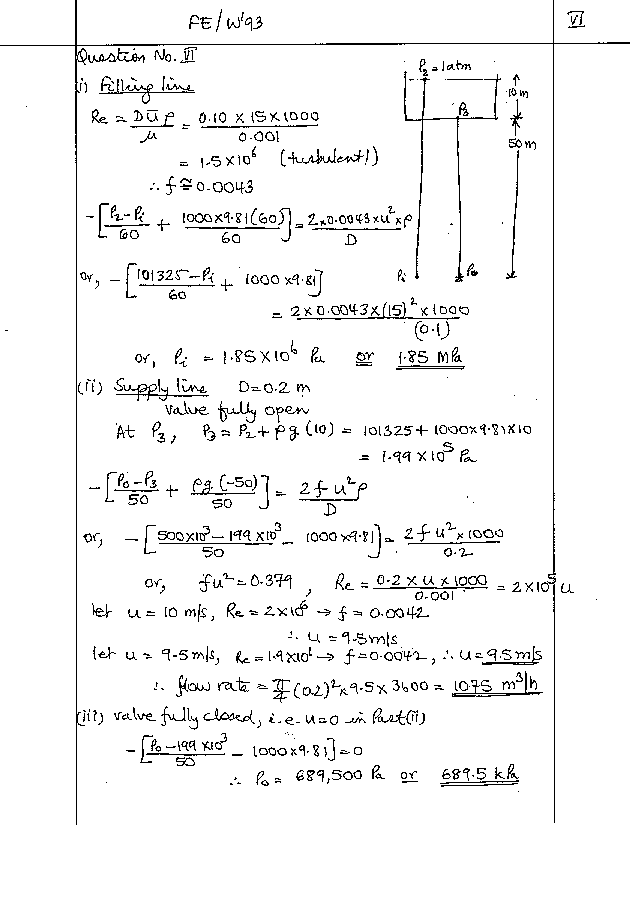 PE/W'93
VI
Question No. VI
(i) Filling line
P₂ = 1atm
10 m
P₃
50 m
Pᵢ
P₀
Re = DŪρ/μ = 0.10 × 15 × 1000/0.001
= 1.5 × 10⁶ (turbulent!)
∴ f ≅ 0.0043
-[P₂-Pᵢ/60 + 1000×9.81(60)/60] = 2×0.0043×u²×ρ/D
or, -[101325-Pᵢ/60 + 1000×9.81]
= 2×0.0043×(15)²×1000/(0.1)
or, Pᵢ = 1.85×10⁶ Pa or 1.85 MPa
(ii) Supply line D=0.2 m
valve fully open
At P₃, P₃ = P₂ + ρg(10) = 101325 + 1000×9.81×10
= 1.99 × 10⁵ Pa
-[P₀-P₃/50 + ρg(-50)/50] = 2fu²ρ/D
or, -[500×10³-199×10³/50 - 1000×9.81] = 2fu²×1000/0.2
or, fu² = 0.379, Re = 0.2×u×1000/0.001 = 2×10⁵ u
let u = 10 m/s, Re = 2×10⁶ → f = 0.0042
∴ u = 9.5 m/s
let u = 9.5 m/s, Re = 1.9×10⁶ → f = 0.0042, ∴ u = 9.5 m/s
∴ flow rate = π/4 (0.2)² × 9.5 × 3600 = 1075 m³/h
(iii) valve fully closed, i.e. u=0 in Part(ii)
-[P₀-199×10³/50 - 1000×9.81] = 0
∴ P₀ = 689,500 Pa or 689.5 kPa